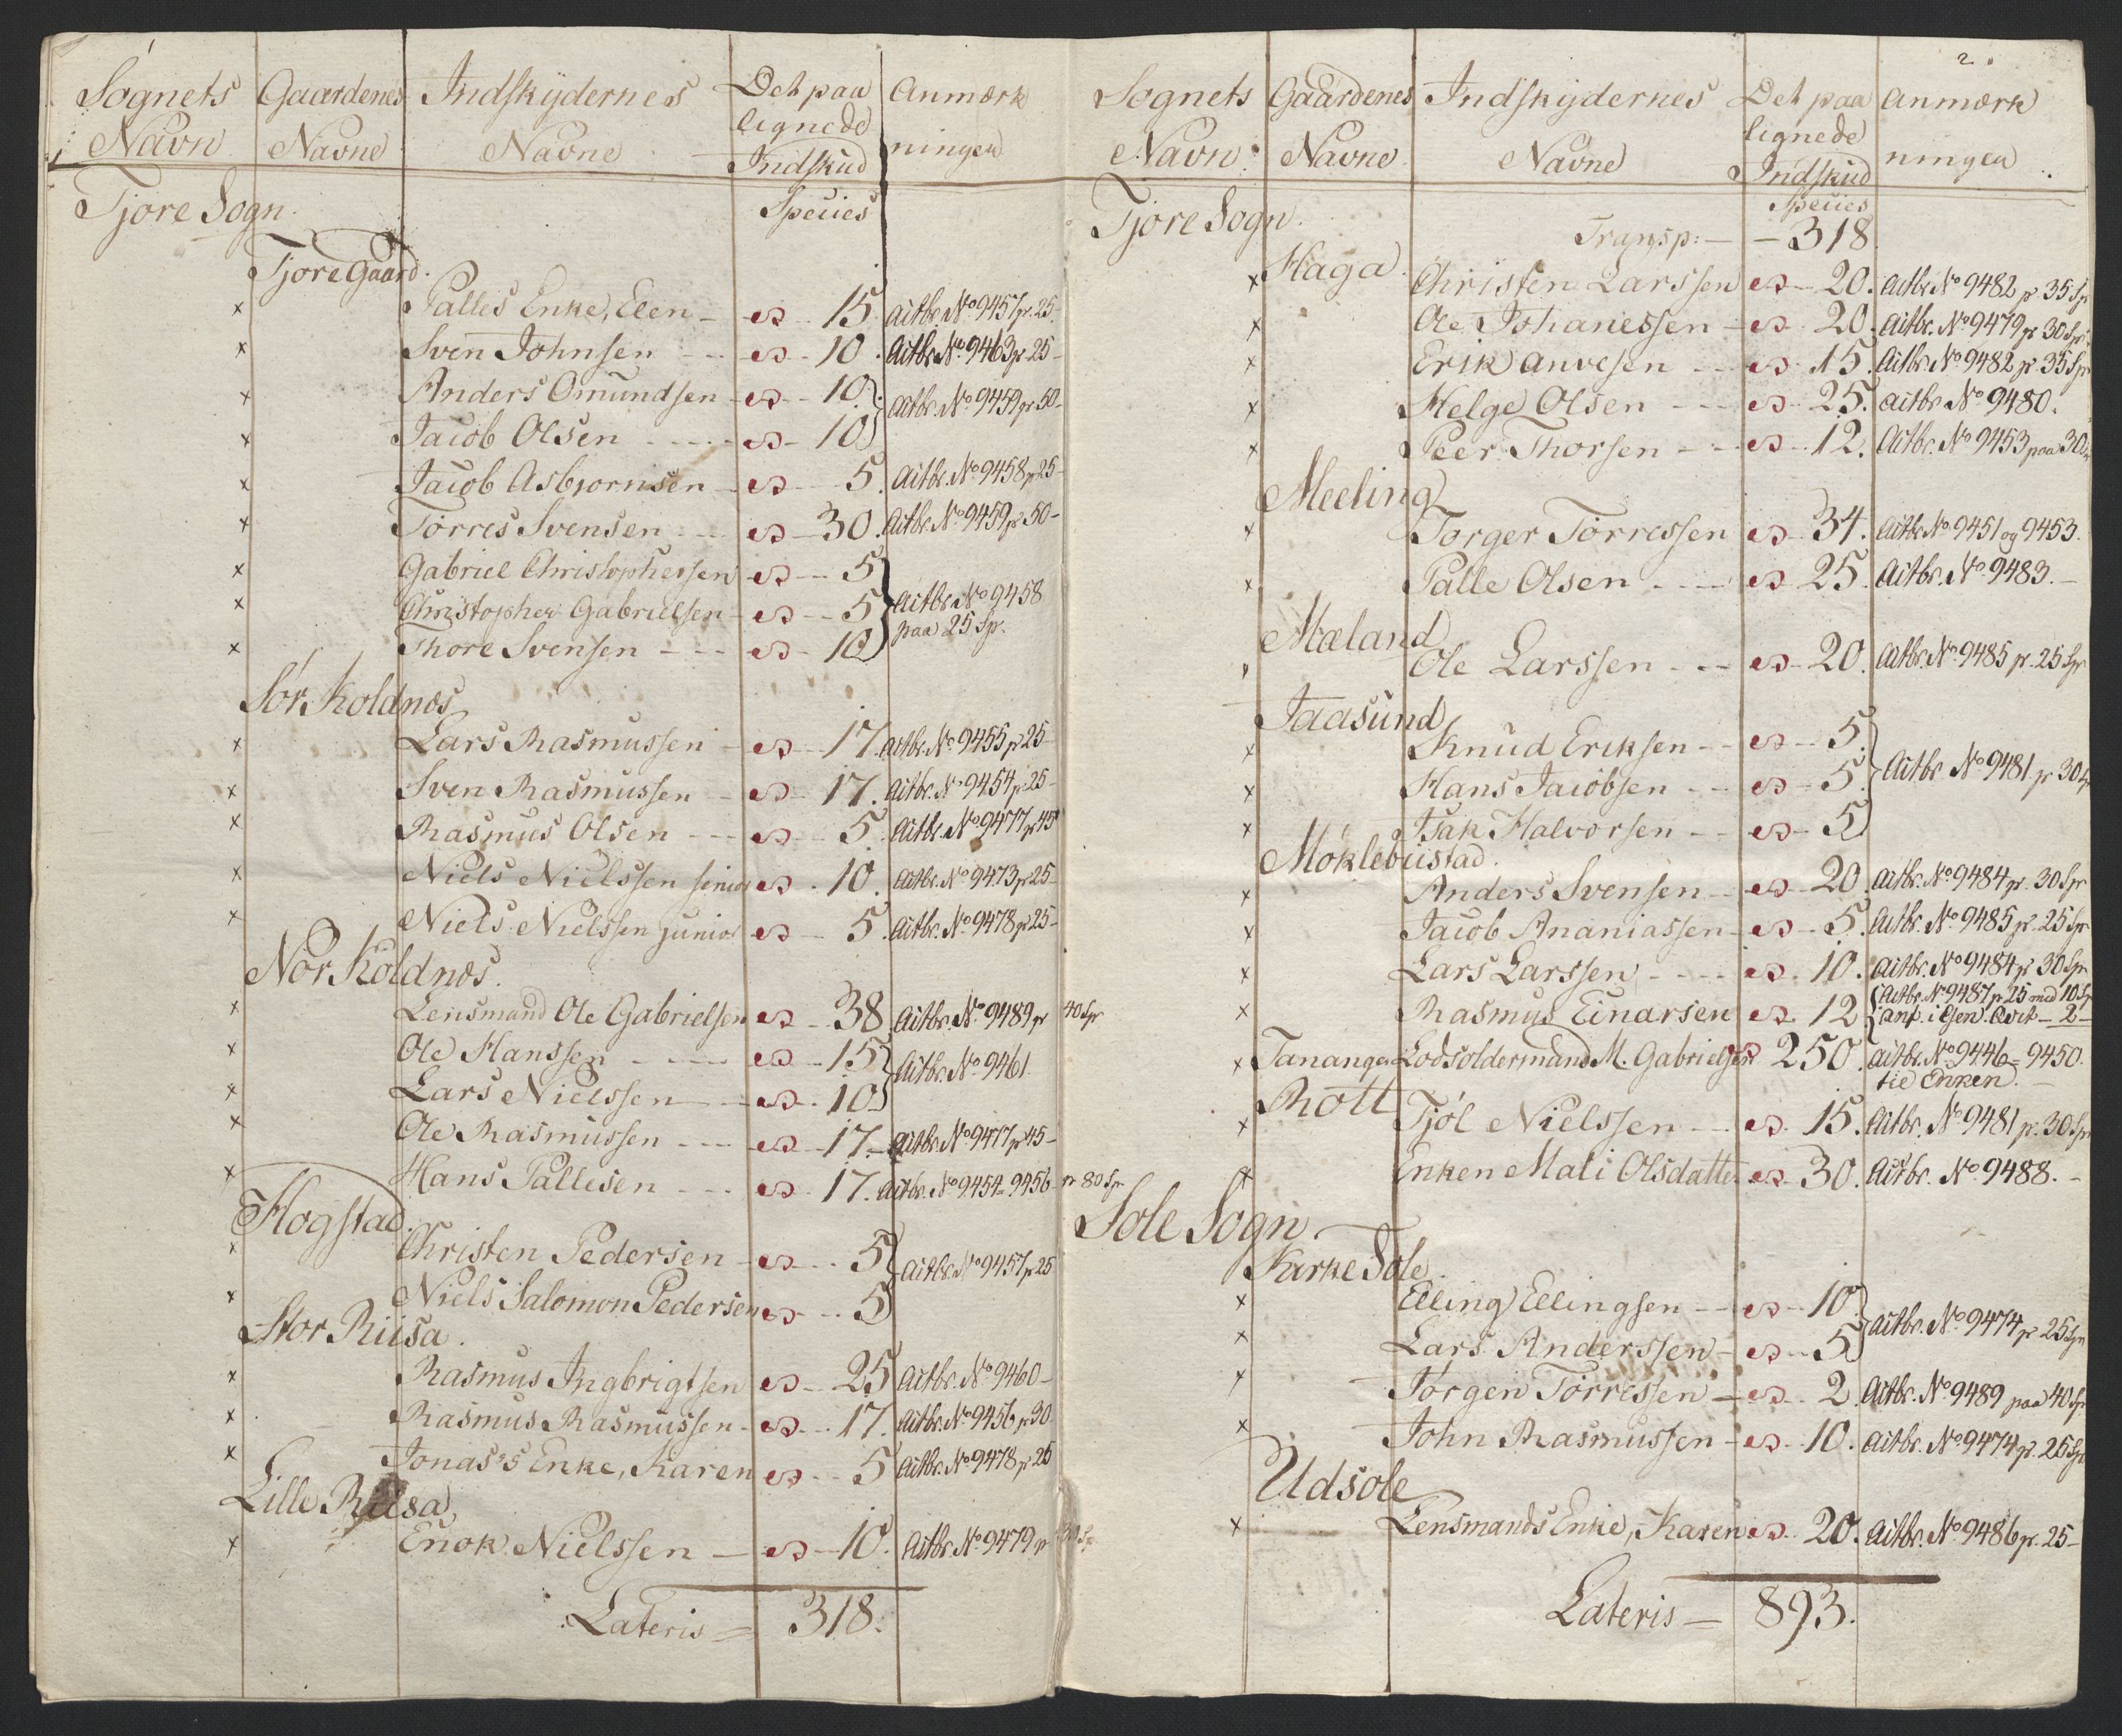 Sognets Navn | Gaardenes Navne | Indskydernes Navne | Det paa lignede Indskud | Anmærk ningen
Species
Tjore Sogn.
Tjore Gaard.
x Palles Enke, Elen - 15. Actbr. No 9457 p. 25.
x Sven Johnsen - 10. Actbr. No. 9463 p 25 -
x Anders Omundsen - 10. } Actbr. No 9459 pr 50 -
x Jacob Olsen - 10 }
x Jacob Asbjørnsen - 5. Actbr. No 9458 p 25 -
x Torres Svensen - 30. Actbr. No 9459 p 50 -
x Gabriel Christophersen - 5 }
x Christopher Gabrielsen - 5 } Actbr. No 9458
x Thore Svensen - 10 } paa 25 Sp.
Sør Koldnæs
x Lars Rasmussen - 17. Actbr. No 9455 p 25 -
x Sven Rasmussen - 17. Actbr. No 9454 p 25 -
x Rasmus Olsen - 5. Actbr. No 9477 p 45
x Niels Nielssen senior 10. Actbr. No 9473 p 25 -
x Niels Nielssen junior - 5. Actbr. No 9478 p 25 -
Nor Koldnæs.
x Lensmand Ole Gabrielsen - 38 Actbr. No. 9489 pr 40 Spr
x Ole Hanssen - 15 } Actbr. No 9461.
x Lars Nielssen - 10. }
x Ole Rasmussen - 17. - Actbr. No 9477 p 45 -
x Hans Pallesen - 17. Actbr. No 9454 = 9456 pr 80 Spr
Hogstad.
x Christen Pedersen - 5 } Actbr. No 9457 p 25
x Niels Salomon Pedersen - 5 }
Stor Riisa.
x Rasmus Ingbrigtsen - 25 Actbr. No 9460 -
x Rasmus Rasmussen - 17. Actbr. No 9456 p 30 -
x Jonas's Enke, Karen - 5 Actbr. No 9478 p 25
Lille Riisa
x Enok Nielssen - 10. Actbr. No 9479 p 30 Sp
Lateris = 318.
2.
Sognets Navn | Gaardenes Navne | Indskydernes Navne | Det paa lignede Indskud | Anmærk ningen
Species
Tjore Sogn.
Transp: - - 318.
Haga.
x Christen Larssen - 20. Actbr. No 9482 p 35 Sp
x Ole Johanessen - 20. Actbr. No 9479 p 30 Sp.
x Erik Anvesen - 15. Actbr. No 9482 p. 35 Sp
x Helge Olsen - 25. Actbr. No 9480.
x Peer Thorsen - 12. Actbr. No 9453 paa 30
Meeling
x Torger Torressen - 34. Actbr. No 9451 og 9453.
x Palle Olsen - 25. Actbr. No. 9483. -
Mæland
Ole Larssen - 20. Actbr. No. 9485 p. 25 Spr
Jaasund
x Knud Eriksen - 5. }
x Hans Jacobsen - 5. } Actbr No 9481. p 30
x Isak Halvorsen - 5 }
Møklebustad.
x Anders Svensen - 20. Actbr. No 9484 p. 30 Spr
x Jacob Ananiassen - 5. Actbr. No 9485 p. 25 Spr
x Lars Larssen - 10. Actbr. No 9484 p 30 Spr
x Rasmus Einarsen - 12 { Actbr. No 9487 p 25 med 10 Sp
{ anf. i Gjen. Qvit - 2 -
x Tananger Lodsoldermand M. Gabrielsen 250. Actbr. No 9446 = 9450.
til Enken. -
Rott
x Tjøl Nielssen - 15. Actbr. No 9481 p. 30 Spr
x Enken Mali Olsdatter - 30. Actbr. No 9488. -
Sole Sogn
Kirke Sole.
x Elling Ellingsen - 10. } Actbr. No 9474 p 25 Spr
x Lars Anderssen - 5 }
x Jørgen Torressen - 2. Actbr. No 9489 paa 40 Spr
x John Rasmussen - 10. Actbr. No 9474 p. 25 Spr
Udsole
x Lensmands Enke, Karen 20. Actbr. No 9486 p. 25 -
Lateris = 893.